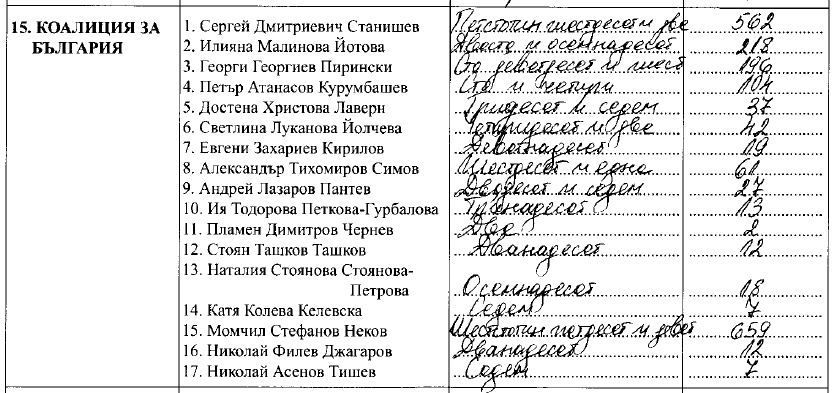 15. КОАЛИЦИЯ ЗА БЪЛГАРИЯ
1. Сергей Дмитриевич Станишев Петстотин шестдесет и две 562
2. Илияна Малинова Йотова Двеста и осемнадесет 218
3. Георги Георгиев Пирински Сто деветдесет и шест 196
4. Петър Атанасов Курумбашев Сто и четири 104
5. Достена Христова Лаверн Тридесет и седем 37
6. Светлина Луканова Йолчева Четиридесет и две 42
7. Евгени Захариев Кирилов Деветнадесет 19
8. Александър Тихомиров Симов Шестдесет и една 61
9. Андрей Лазаров Пантев Двадесет и седем 27
10. Ия Тодорова Петкова-Гурбалова Тринадесет 13
11. Пламен Димитров Чернев Две 2
12. Стоян Ташков Ташков Дванадесет 12
13. Наталия Стоянова Стоянова-
Петрова Осемнадесет 18
14. Катя Колева Келевска Седем 7
15. Момчил Стефанов Неков Шестстотин петдесет и девет 659
16. Николай Филев Джагаров Дванадесет 12
17. Николай Асенов Тишев Седем 7